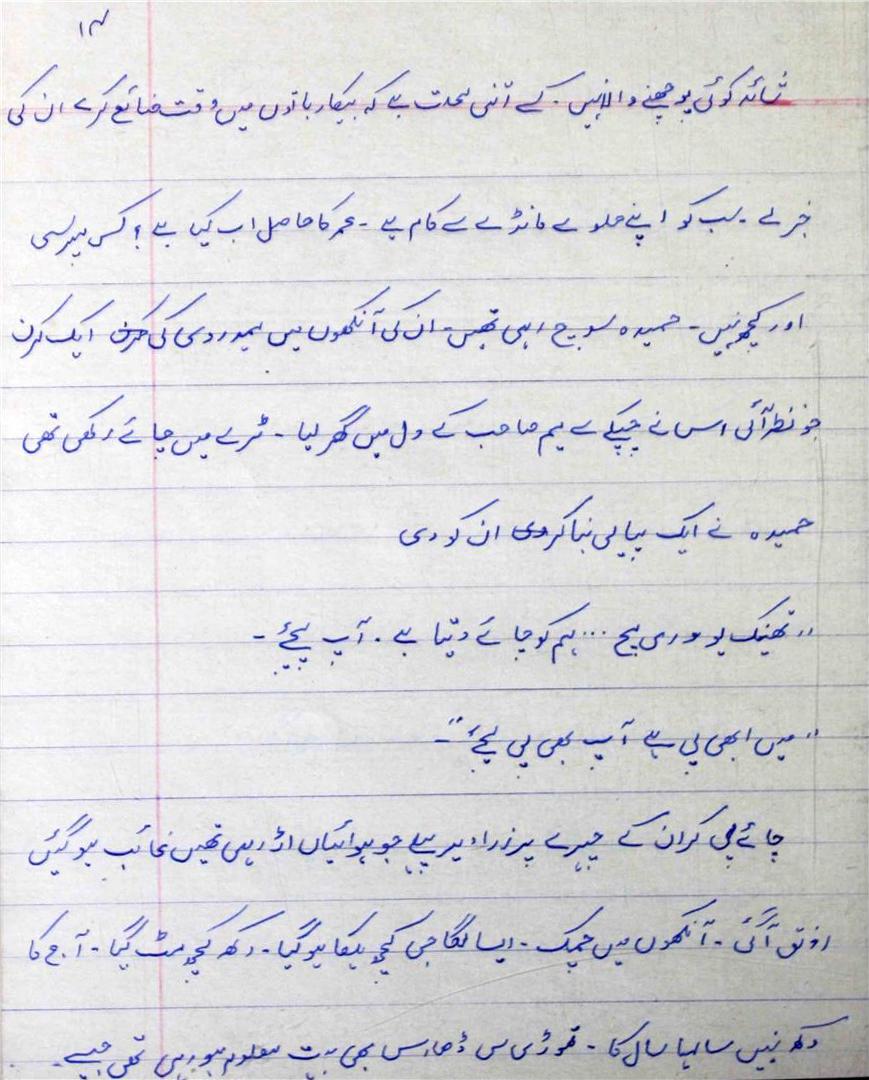 ۱۴
شائد کوئی پوچھنے والا نہیں ۔ کسے اتنی مہلت ہے کہ بیکار باتوں میں وقت ضائع کرے ان کی
خبر لے ۔ سب کو اپنے حلوے مانڈے سے کام ہے ۔ عمر کا حاصل اب کیا ہے ؟ کس مپرسی
اور کچھ نہیں ۔ حمیدہ سوچ رہی تھیں ۔ ان کی آنکھوں میں ہمدردی کی ایک کرن
جو نظر آئی اس نے چپکے سے میم صاحب کے دل میں گھر لیا ۔ ٹرے میں چائے رکھی تھی
حمیدہ نے ایک پیالی بنا کر ان کو دی
"تھینک یو وری مچ ... ہم کو چائے دیتا ہے ۔ آپ پیجئے ۔
"میں ابھی پی ہے آپ بھی پی لیجئے" ۔
چائے پی کر ان کے چہرے پر ذرا دیر پہلے جو ہوائیاں اڑ رہی تھیں غائب ہو گئیں
رونق آ گئی ۔ آنکھوں میں چمک ۔ ایسا لگا جی کچھ ہلکا ہو گیا ۔ دکھ کچھ مٹ گیا ۔ آج کا
دکھ نہیں سالہا سال کا ۔ تھوڑی سی ڈھارس بھی بہت معلوم ہو رہی تھی جیسے ۔